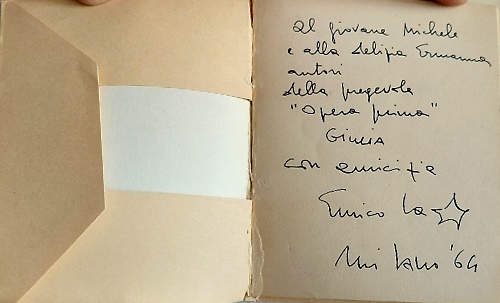 al giovane Michele
e alla delizia Ermanna
autori
della pregevole
"Opera prima"
Giulia
con amicizia
Enrico La
Milano '64